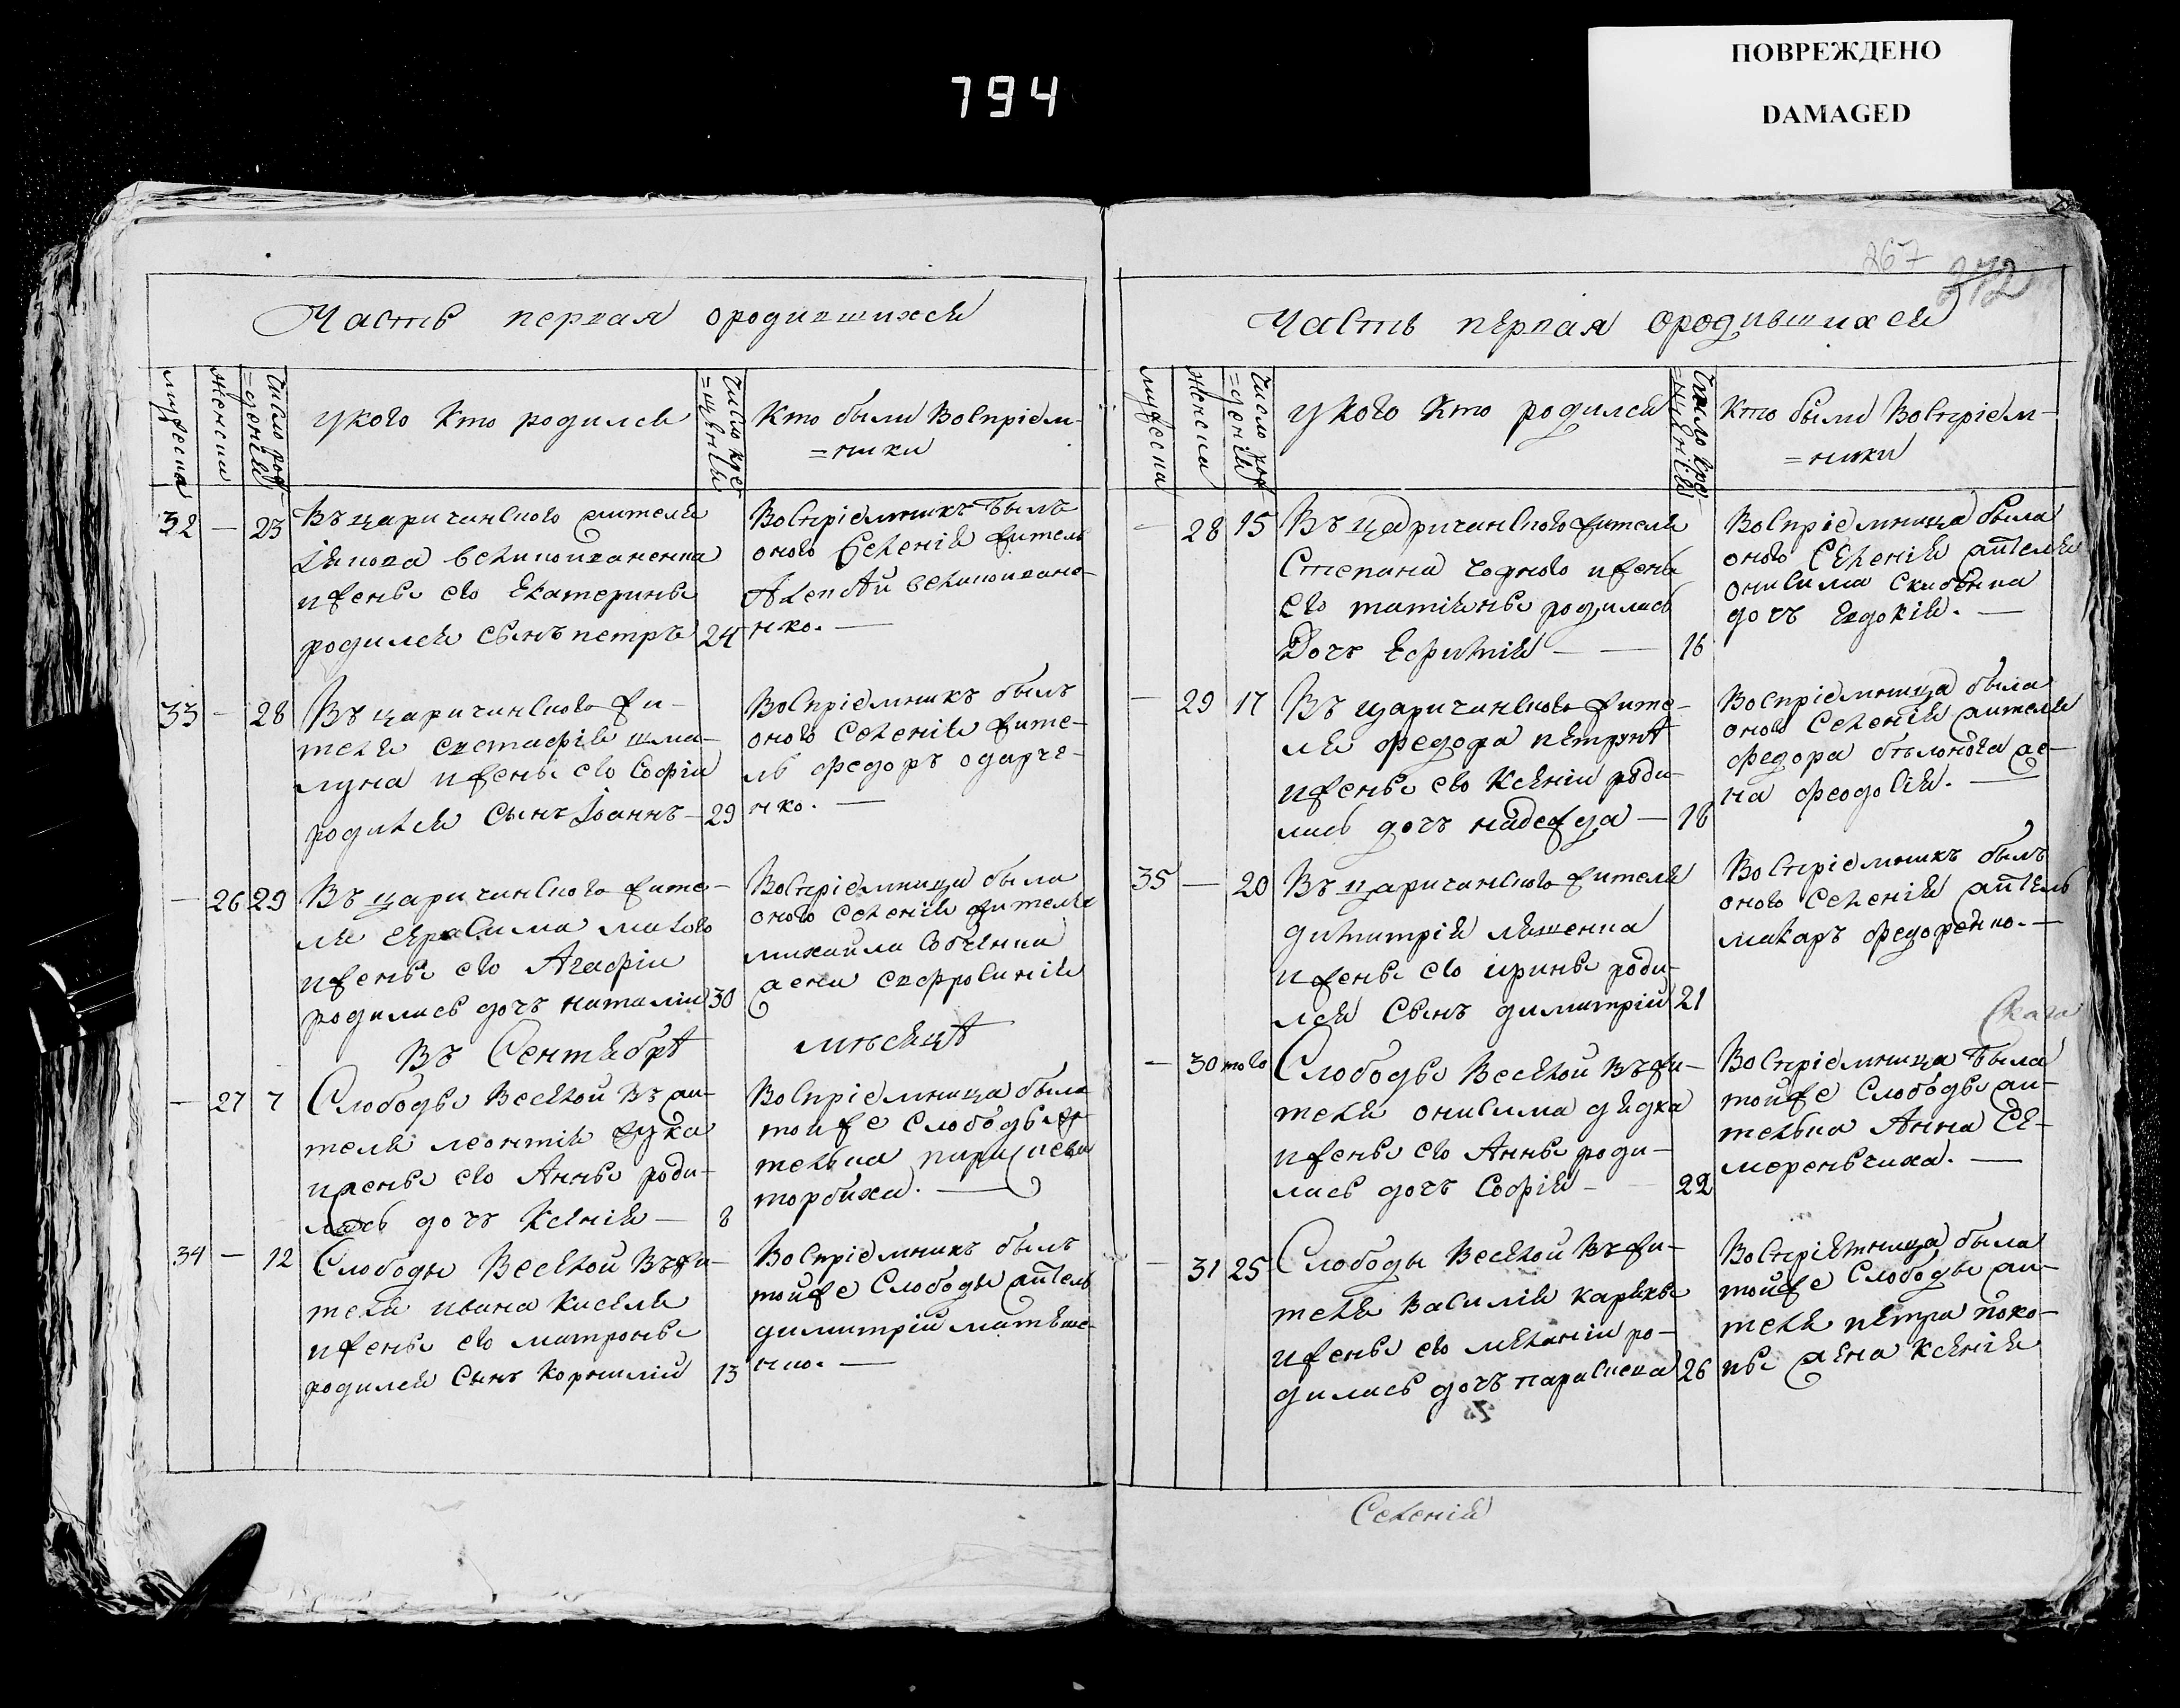 794
ПОВРЕЖДЕНО
DAMAGED
Часть первая ородившихся
мужеска
женска
Число рож
=дения
укого кто родился
Число кре
=щения
Кто были Восприем-
=ники
32 — 23
Въ царичанского жителя
Якова великоиваненка
ижены его Екатерины
родился сынъ петръ 24
Восприемникъ былъ
оного селения житель
Алексей великоивано-
нко. —
33 — 28
Въ царичанского жи-
теля евстафия шма-
луна ижены его Софии
родился Сынъ Iоаннъ — 29
Восприемникъ былъ
оного селения жите-
ль федоръ одарче-
нко. —
— 26 29
Въ царичанского жите-
ля герасима малого
ижены его Агафии
родилась дочъ наталия 30
Восприемница была
оного селения жителя
михайла
жена евфросиния
Въ Сентября месяця
— 27 7
Слободы Веселой Въ жи-
теля леонтия
ижены его Анны роди-
лась дочъ Ксения — 8
Восприемница была
тойже Слободы жи-
телька параскева
торбиха. —
34 — 12
Слободы Веселой Въ жи-
теля ивана киселя
ижены его матроны
родился Сынъ Корнилий 13
Восприемникъ былъ
тойже Слободы житель
димитрий матвие-
нко. —
267
272
Часть первая ородившихся
мужеска
женска
Число рож
=дения
укого кто родился
Число кре
=щения
Кто были Восприем-
=ники
— 28 15
Въ царичанского жителя
Степана чорного ижены
его татияны родилась
Дочъ Евфимия — — 16
Восприемница была
оного Селения жителя
онисима скибенка
дочъ Евдокия. —
— 29 17
Въ царичанского жите-
ля федора петруня
ижены его Ксении роди-
лась дочъ надежда — 18
Восприемница была
оного Селения жителя
федора белонога же-
на феодосия. —
35 — 20
Въ царичанского жителя
димитрия ляшенка
ижены его ирины роди-
лся Сынъ димитрий 21
Восприемникъ былъ
оного Селения житель
макаръ федоренко. —
— 30 того
Слободы Веселой Въ жи-
теля онисима дядка
ижены его Анны роди-
лась дочъ София — 22
Восприемница была
тойже Слободы жи-
телька Анна Се-
меренчиха. —
— 31 25
Слободы Веселой Въ жи-
теля Василия
ижены его мелании ро-
дилась дочъ параскева 26
Восприемница была
тойже Слободы жи-
теля петра поко-
вы жена ксения
Селения